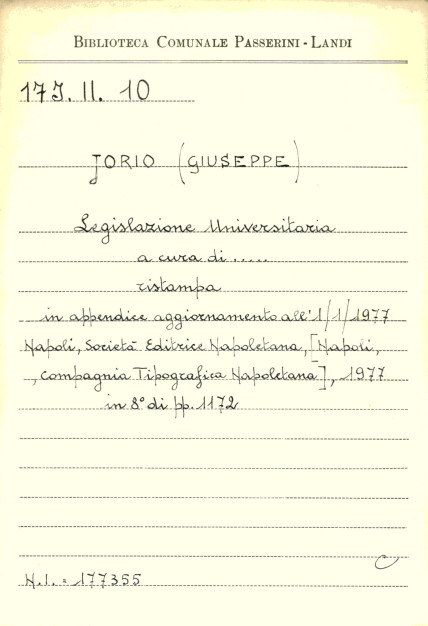 BIBLIOTECA COMUNALE PASSERINI - LANDI
17J. II. 10
JORIO (GIUSEPPE)
Legislazione Universitaria
a cura di .....
ristampa
in appendice aggiornamento all'1/1/1977
Napoli, Società Editrice Napoletana, [Napoli,
, Compagnia Tipografica Napoletana], 1977
in 8° di pp. 1172
C
N.I. = 177355